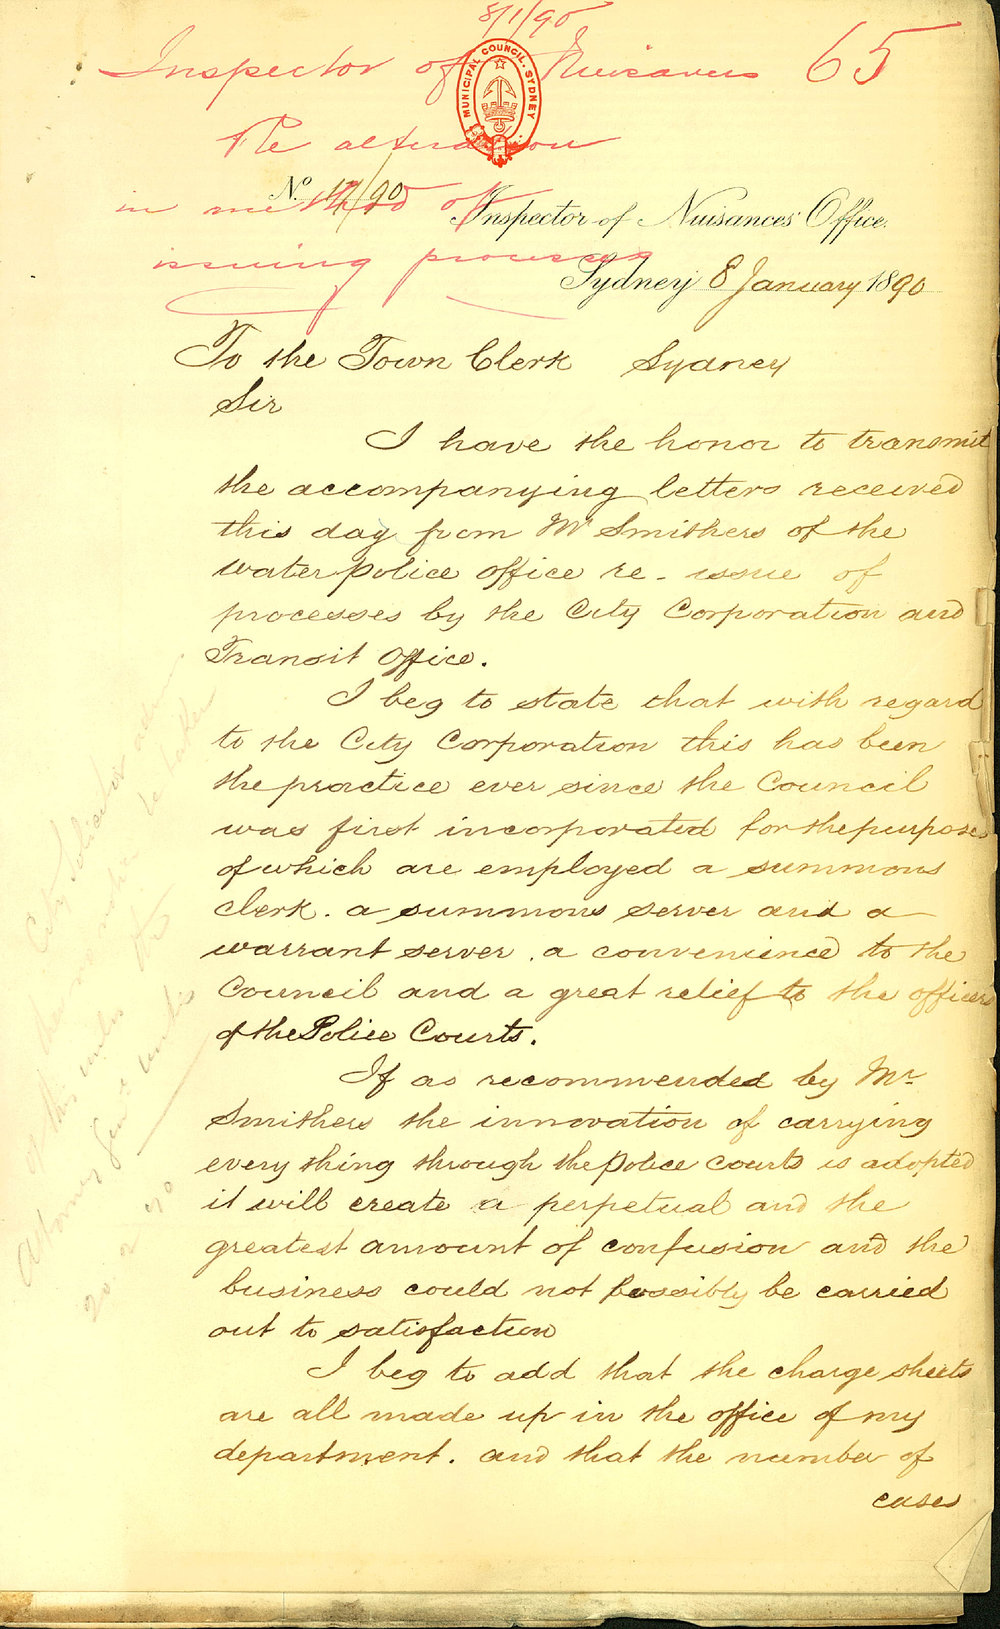 8/1/90
Inspector of Nuisances 65
MUNICIPAL COUNCIL. SYDNEY
Re alteration
in method of
issuing processes
No. 14/90
Inspector of Nuisances' Office.
Sydney 8 January 1890
To the Town Clerk Sydney
Sir
I have the honor to transmit
the accompanying letters received
this day from Mr Smithers of the
Water police office re- issue of
processes by the City Corporation and
Transit Office.
I beg to state that with regard
to the City Corporation this has been
the practice ever since the Council
was first incorporated for the purposes
of which are employed a summons
clerk. a summons server and a
warrant server, a convenience to the
Council and a great relief to the officers
of the Police Courts.
If as recommended by Mr
Smithers the innovation of carrying
every thing through the police courts is adopted
it will create a perpetual and the
greatest amount of confusion and the
business could not possibly be carried
out to satisfaction
I beg to add that the charge sheets
are all made up in the office of my
department. and that the number of
cases
City Solicitor
of this
Attorney Genl
20 2 90